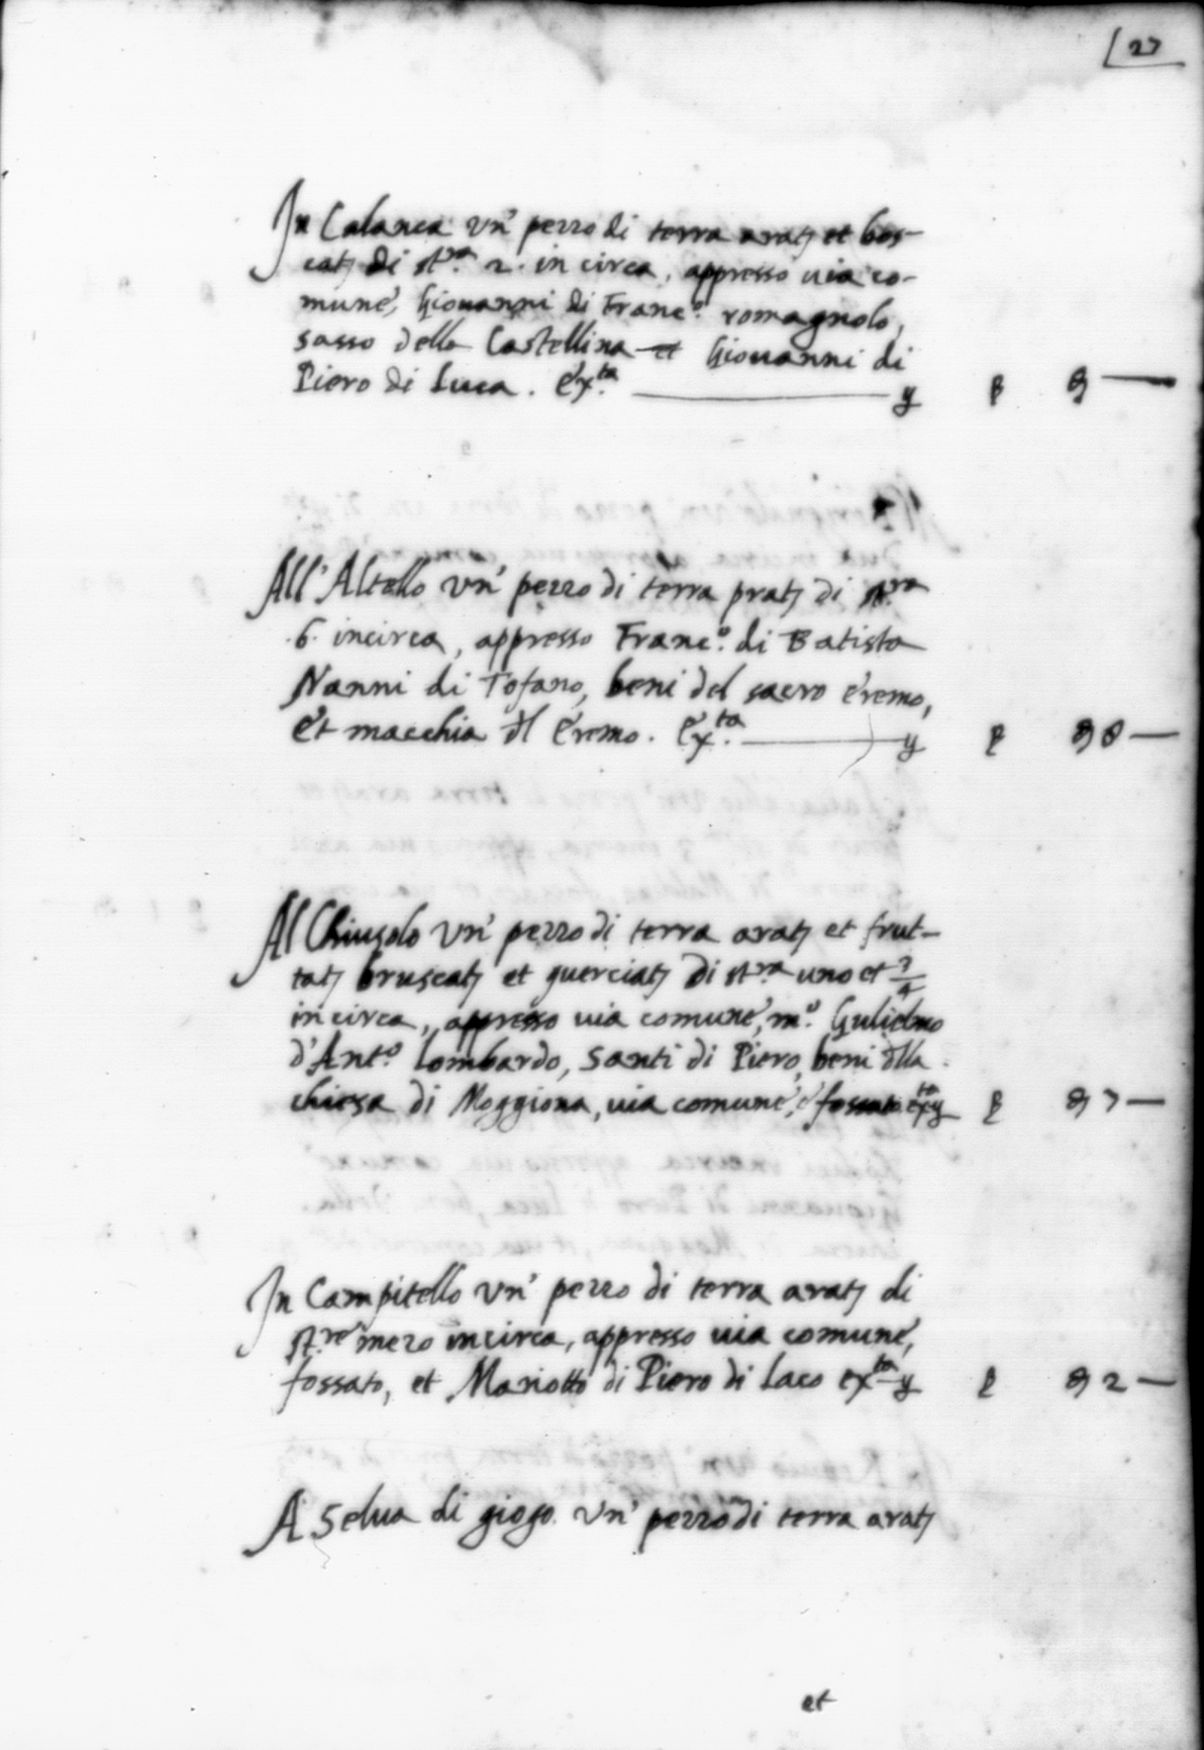 27
In Calanca vn' pezzo di terra arat; et bos-
cat; di st.ra 2. in circa, appresso uia co-
mune, Giouanni di Franc.o romagnolo,
sasso della Castellina et Giouanni di
Piero di Luca. Ex.ta y
All' Altello vn' pezzo di terra prat; di st.ra
.6. incirca, appresso Franc.o di Batista
Nanni di Tofano, beni del sacro eremo,
Et macchia dl Eremo. Ex.ta y
Al Chiusolo vn' pezzo di terra arat; et frut-
tat; bruscat; et querciat; di st.ra uno et 3/4
in circa, appresso uia comune, m.o Gulielmo
d'Ant.o Lombardo, Santi di Piero, beni dlla
chiesa di Moggiona, uia comune, e fossato ex.ta y
In Campitello vn' pezzo di terra arat; di
st.re mezo incirca, appresso uia comune,
fossato, et Mariotto di Piero di Laco ex.ta y
A Selua di giogo vn' pezzo di terra arat;
et